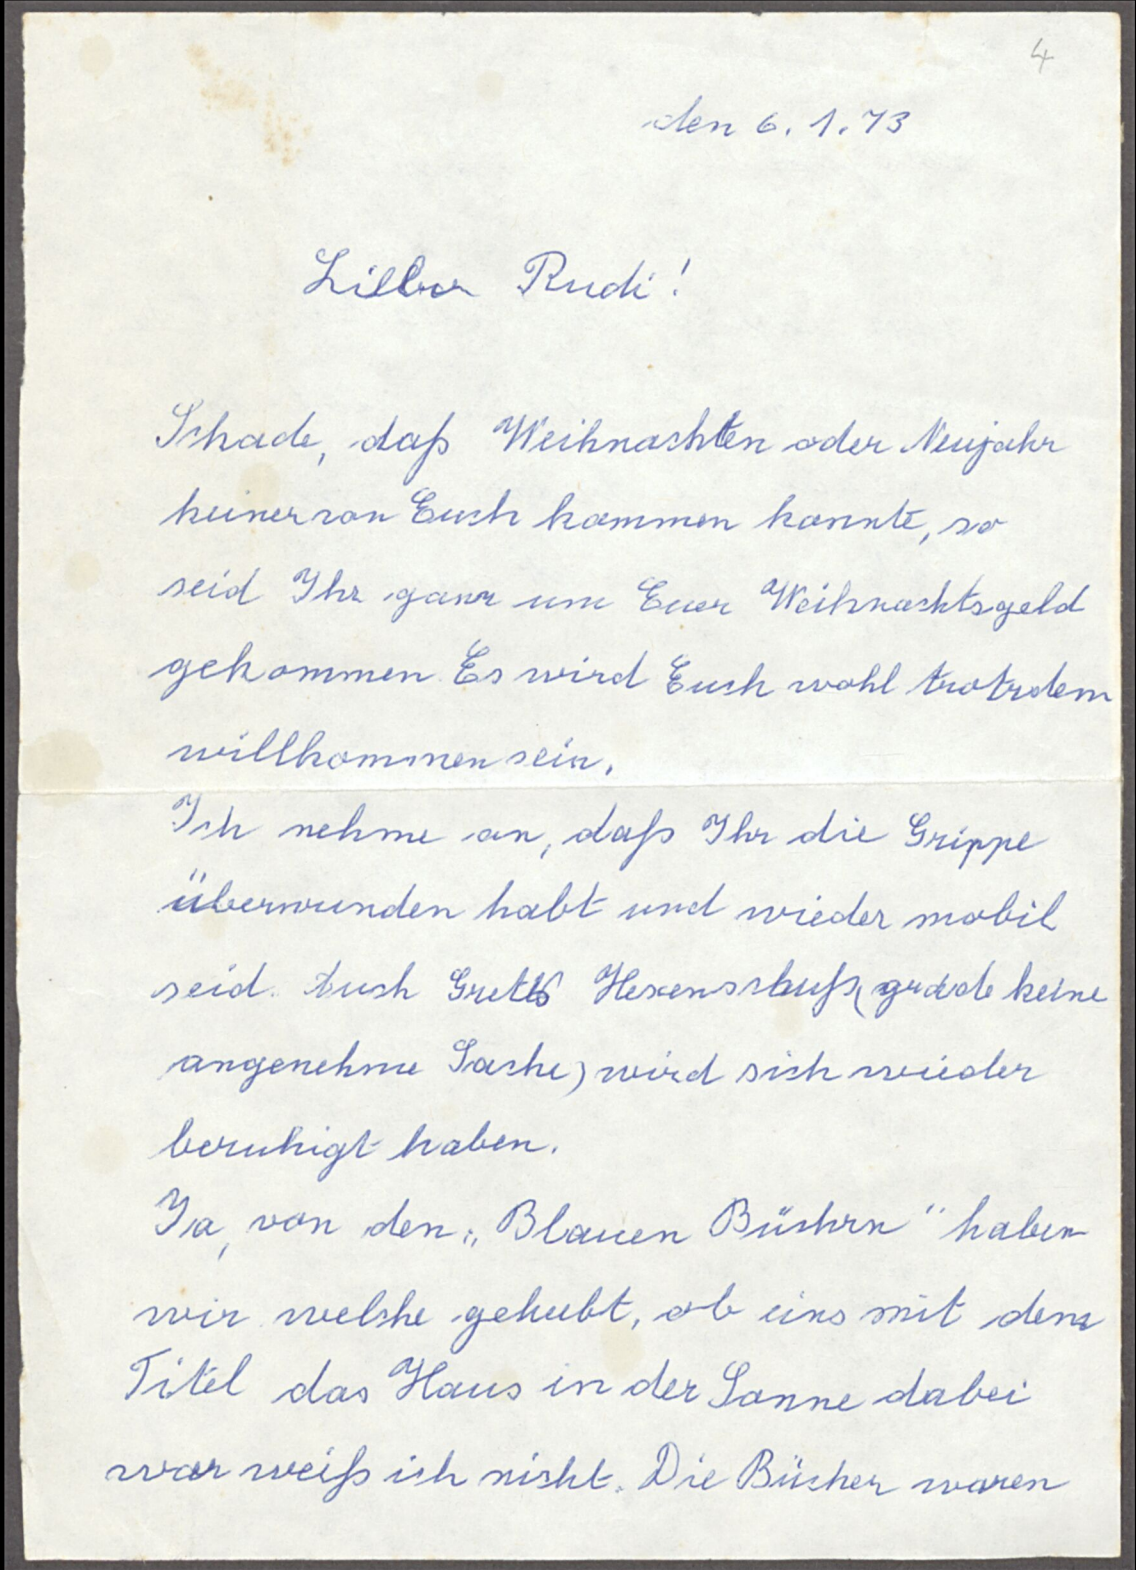 4
den 6. 1. 73
Lieber Rudi!
Schade, daß Weihnachten oder Neujahr
keiner von Euch kommen konnte, so
seid Ihr ganz um Euer Weihnachtsgeld
gekommen. Es wird Euch wohl trotzdem
willkommen sein.
Ich nehme an, daß Ihr die Grippe
überwunden habt und wieder mobil
seid. Auch Gretls Hexenschuß (grade keine
angenehme Sache) wird sich wieder
beruhigt haben.
Ja, von den „Blauen Büchrn" haben
wir welche gehabt, ob eins mit dem
Titel das Haus in der Sonne dabei
war weiß ich nicht. Die Bücher waren